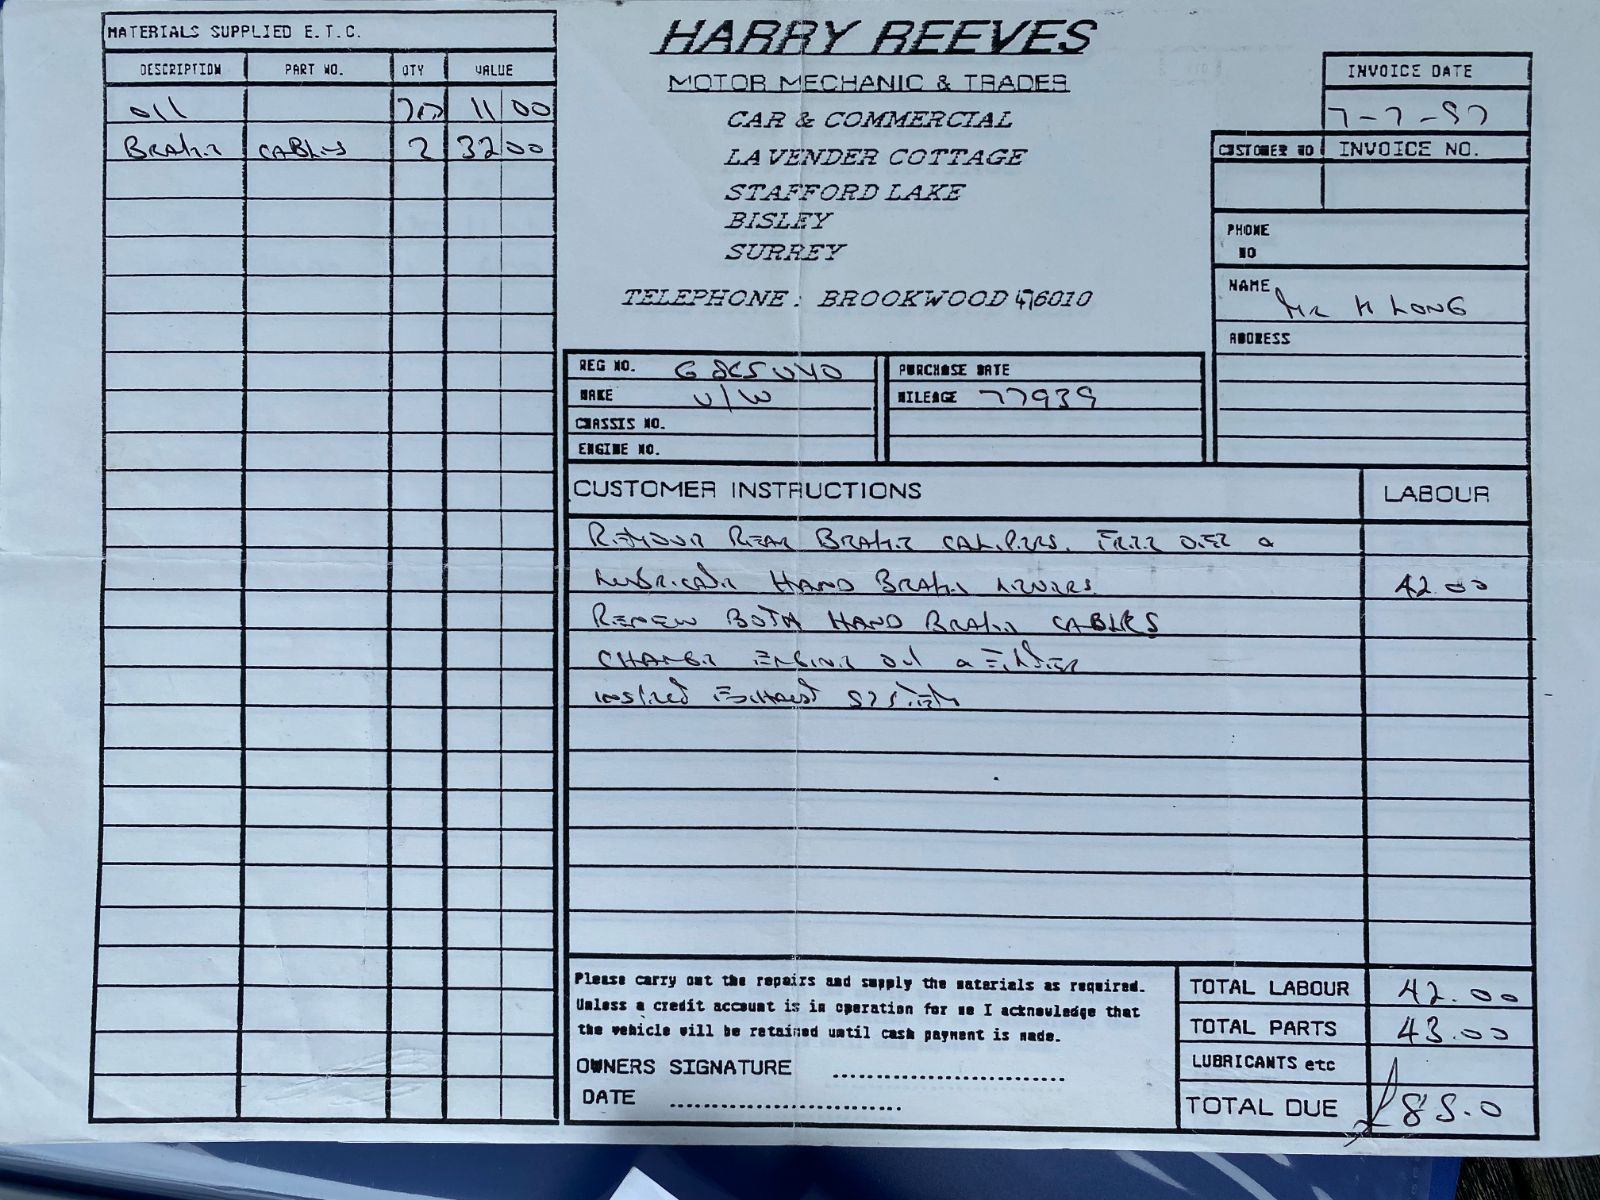 MATERIALS SUPPLIED E.T.C.
DESCRIPTION PART NO. QTY VALUE
oil 11 00
BRAKE CABLES 2 32 00
HARRY REEVES
MOTOR MECHANIC & TRADER
CAR & COMMERCIAL
LAVENDER COTTAGE
STAFFORD LAKE
BISLEY
SURREY
TELEPHONE: BROOKWOOD 476010
INVOICE DATE
7-7-97
CUSTOMER NO INVOICE NO.
PHONE
NO
NAME MR H LONG
ADDRESS
REG NO. G UYO
MAKE V/W
CHASSIS NO.
ENGINE NO.
PURCHASE DATE
MILEAGE 77939
CUSTOMER INSTRUCTIONS LABOUR
REMOVE REAR BRAKE CALIPERS. FREE OFF &
LUBRICATE HAND BRAKE LEVERS 42.00
RENEW BOTH HAND BRAKE CABLES
CHANGE ENGINE OIL & FILTER
INSPECT EXHAUST SYSTEM
Please carry out the repairs and supply the materials as required.
Unless a credit account is in operation for me I acknowledge that
the vehicle will be retained until cash payment is made.
OWNERS SIGNATURE
DATE
TOTAL LABOUR 42.00
TOTAL PARTS 43.00
LUBRICANTS etc
TOTAL DUE £85.0